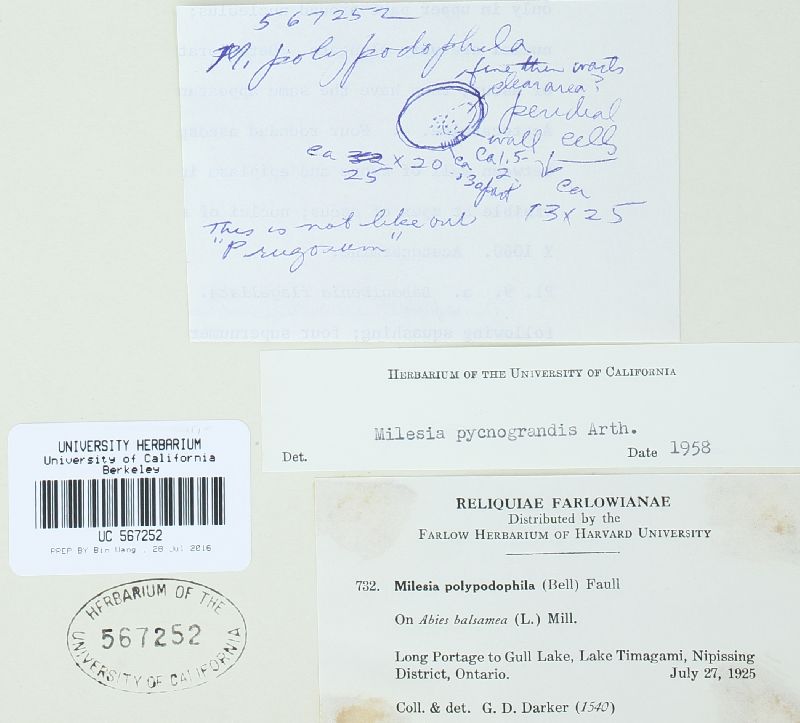 567252
M. polypodophila
fine then warts
clear area?
peridial
wall cells
ca 22 x 20 ca Ca 1.5-
25 2
apart ca
13 x 25
This is not like our
"P rugosum"
HERBARIUM OF THE UNIVERSITY OF CALIFORNIA
Milesia pycnograndis Arth.
Det. Date 1958
UNIVERSITY HERBARIUM
University of California
Berkeley
UC 567252
PREP BY Bin Wang , 28 Jul 2016
HERBARIUM OF THE
567252
UNIVERSITY OF CALIFORNIA
RELIQUIAE FARLOWIANAE
Distributed by the
FARLOW HERBARIUM OF HARVARD UNIVERSITY
732. Milesia polypodophila (Bell) Faull
On Abies balsamea (L.) Mill.
Long Portage to Gull Lake, Lake Timagami, Nipissing
District, Ontario. July 27, 1925
Coll. & det. G. D. Darker (1540)